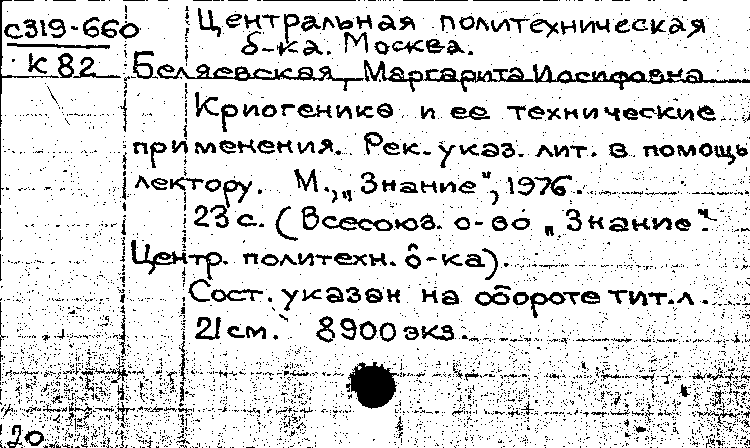 с319-660
К 82
Центральная политехническая
б-ка. Москва.
Беляевская, Маргарита Иосифовна
Криогеника и ее технические
применения. Рек. указ. лит. в помощь
лектору. М., „Знание", 1976.
23 с. (Всесоюз. о-во „Знание".
Центр. политехн. б-ка).
Сост. указан на обороте тит. л.
21 см. 8900 экз.